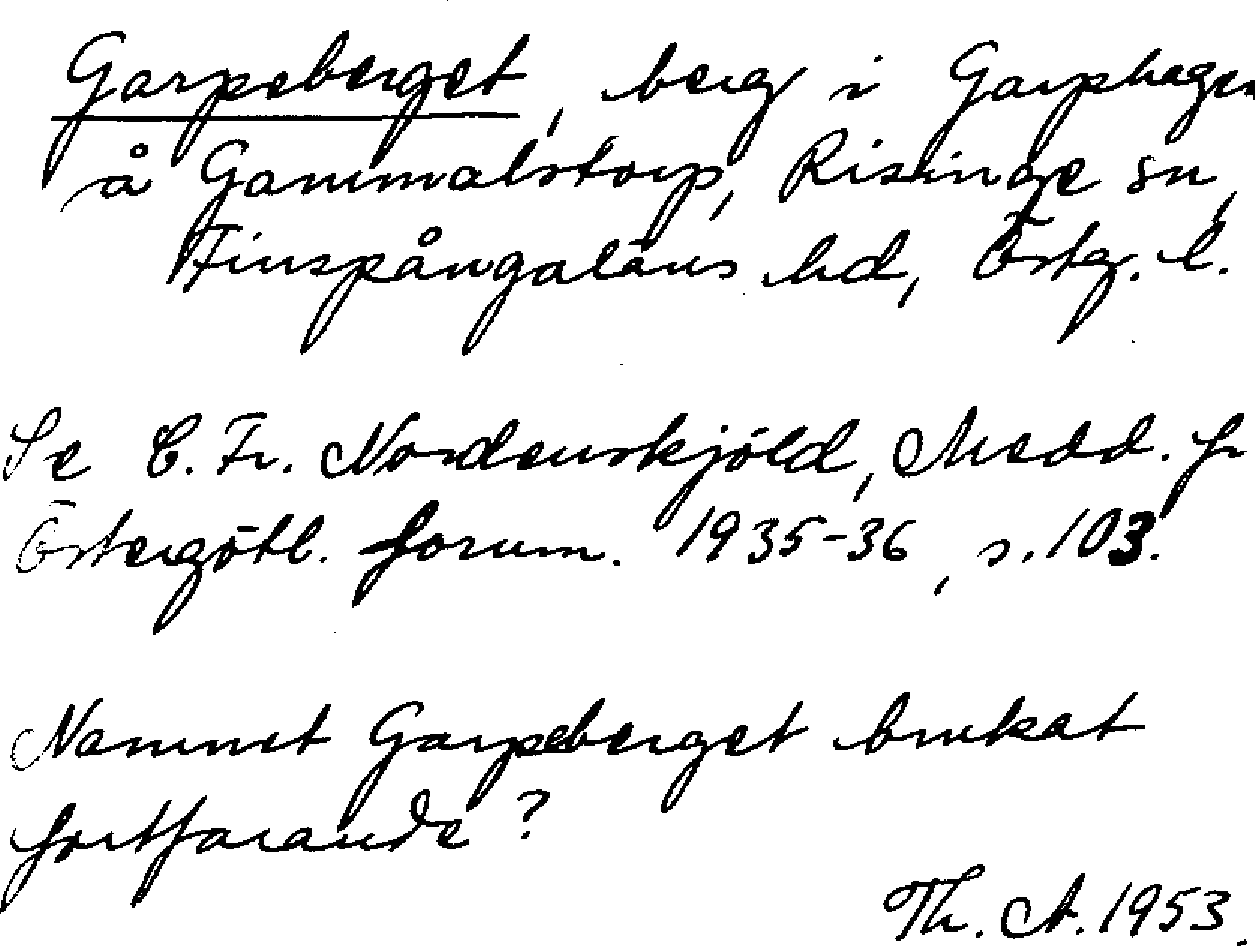 Garpeberget, berg i Garphagen
å Gammalstorp, Risinge sn,
Finspångaläns hd, Östg. l.
Se C. Fr. Nordenskjöld, Medd. fr
Östergötl. fornm. 1935-36, s. 103.
Namnet Garpeberget brukat
fortfarande?
Th. A. 1953.